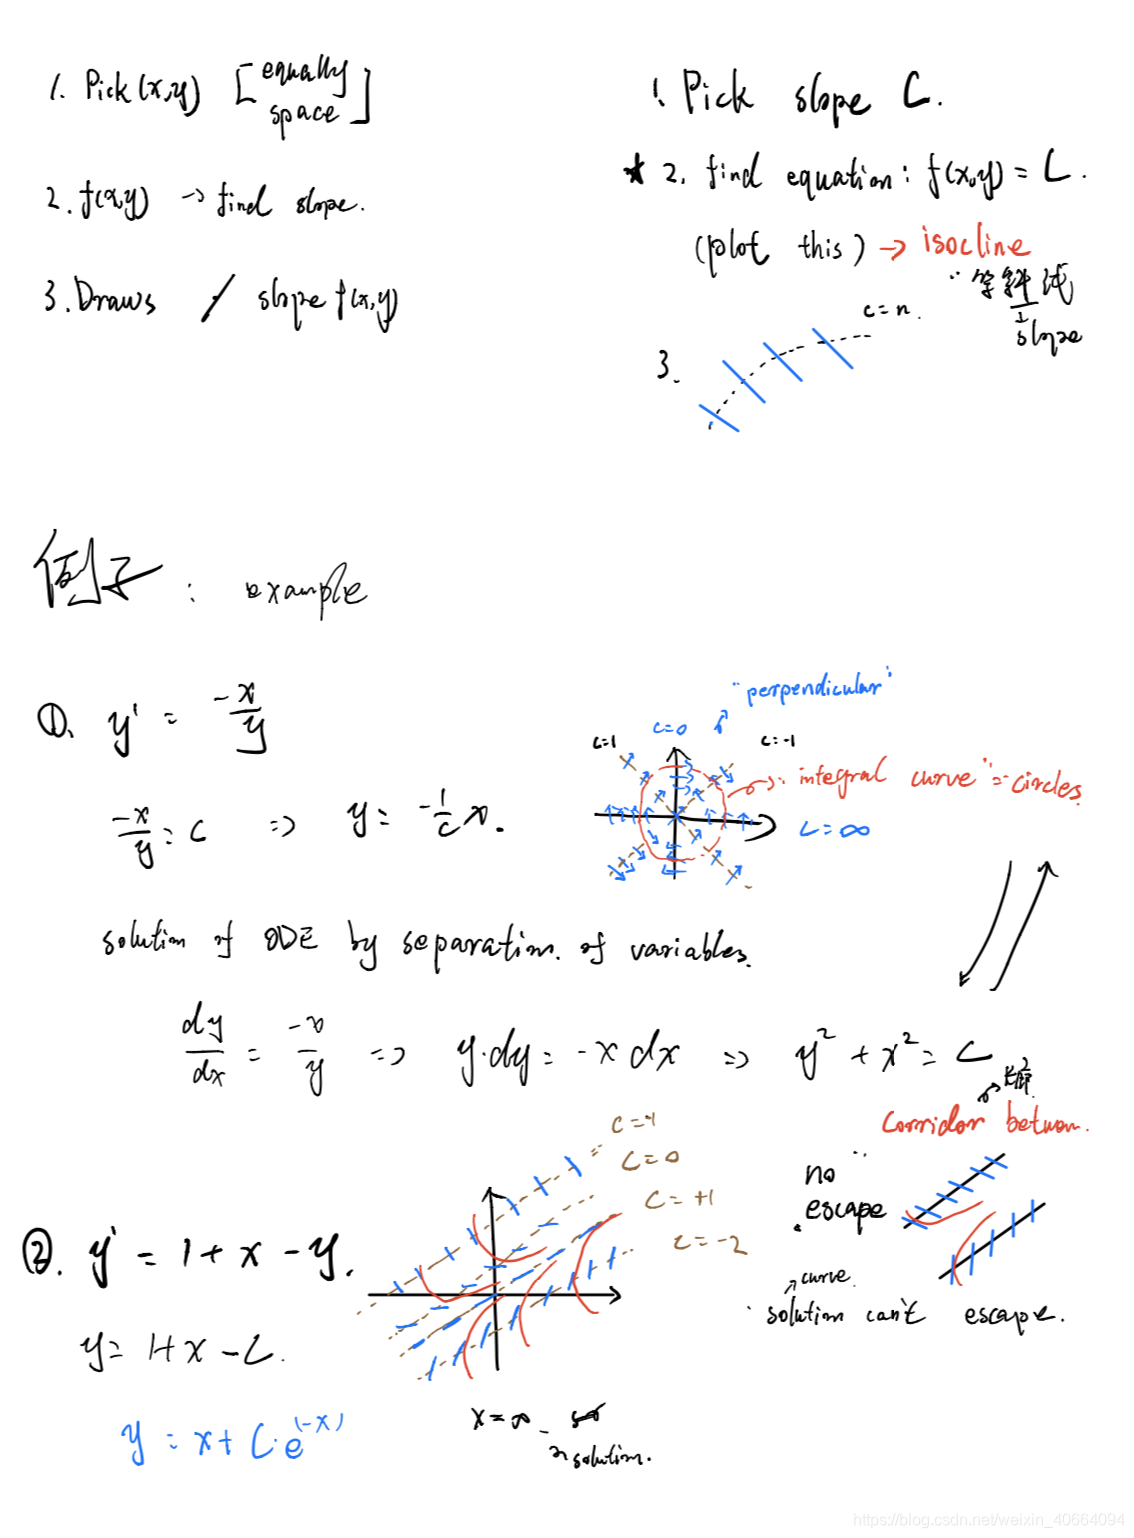 1. Pick (x,y) [equally space]
2. f(x,y) → find slope.
3. Draws / slope f(x,y)
1. Pick slope C.
★ 2. find equation: f(x,y) = C.
(plot this) → isocline
"等斜线
↓
slope
c=n.
3.
例子: example
①. y' = -x/y
-x/y = C ⇒ y = -1/c x.
"perpendicular"
c=1 c=0 c=-1
"integral curve" = circles.
C=∞
solution of ODE by separation. of variables.
dy/dx = -x/y ⇒ y·dy = -x dx ⇒ y² + x² = C
Corridor between.
"no escape"
curve.
solution can't escape.
②. y' = 1+x-y.
c=-1
C=0
C=+1
c=-2
y = 1+x-C.
y = x+C·e^(-x)
x=∞
solution.
https://blog.csdn.net/weixin_40664094